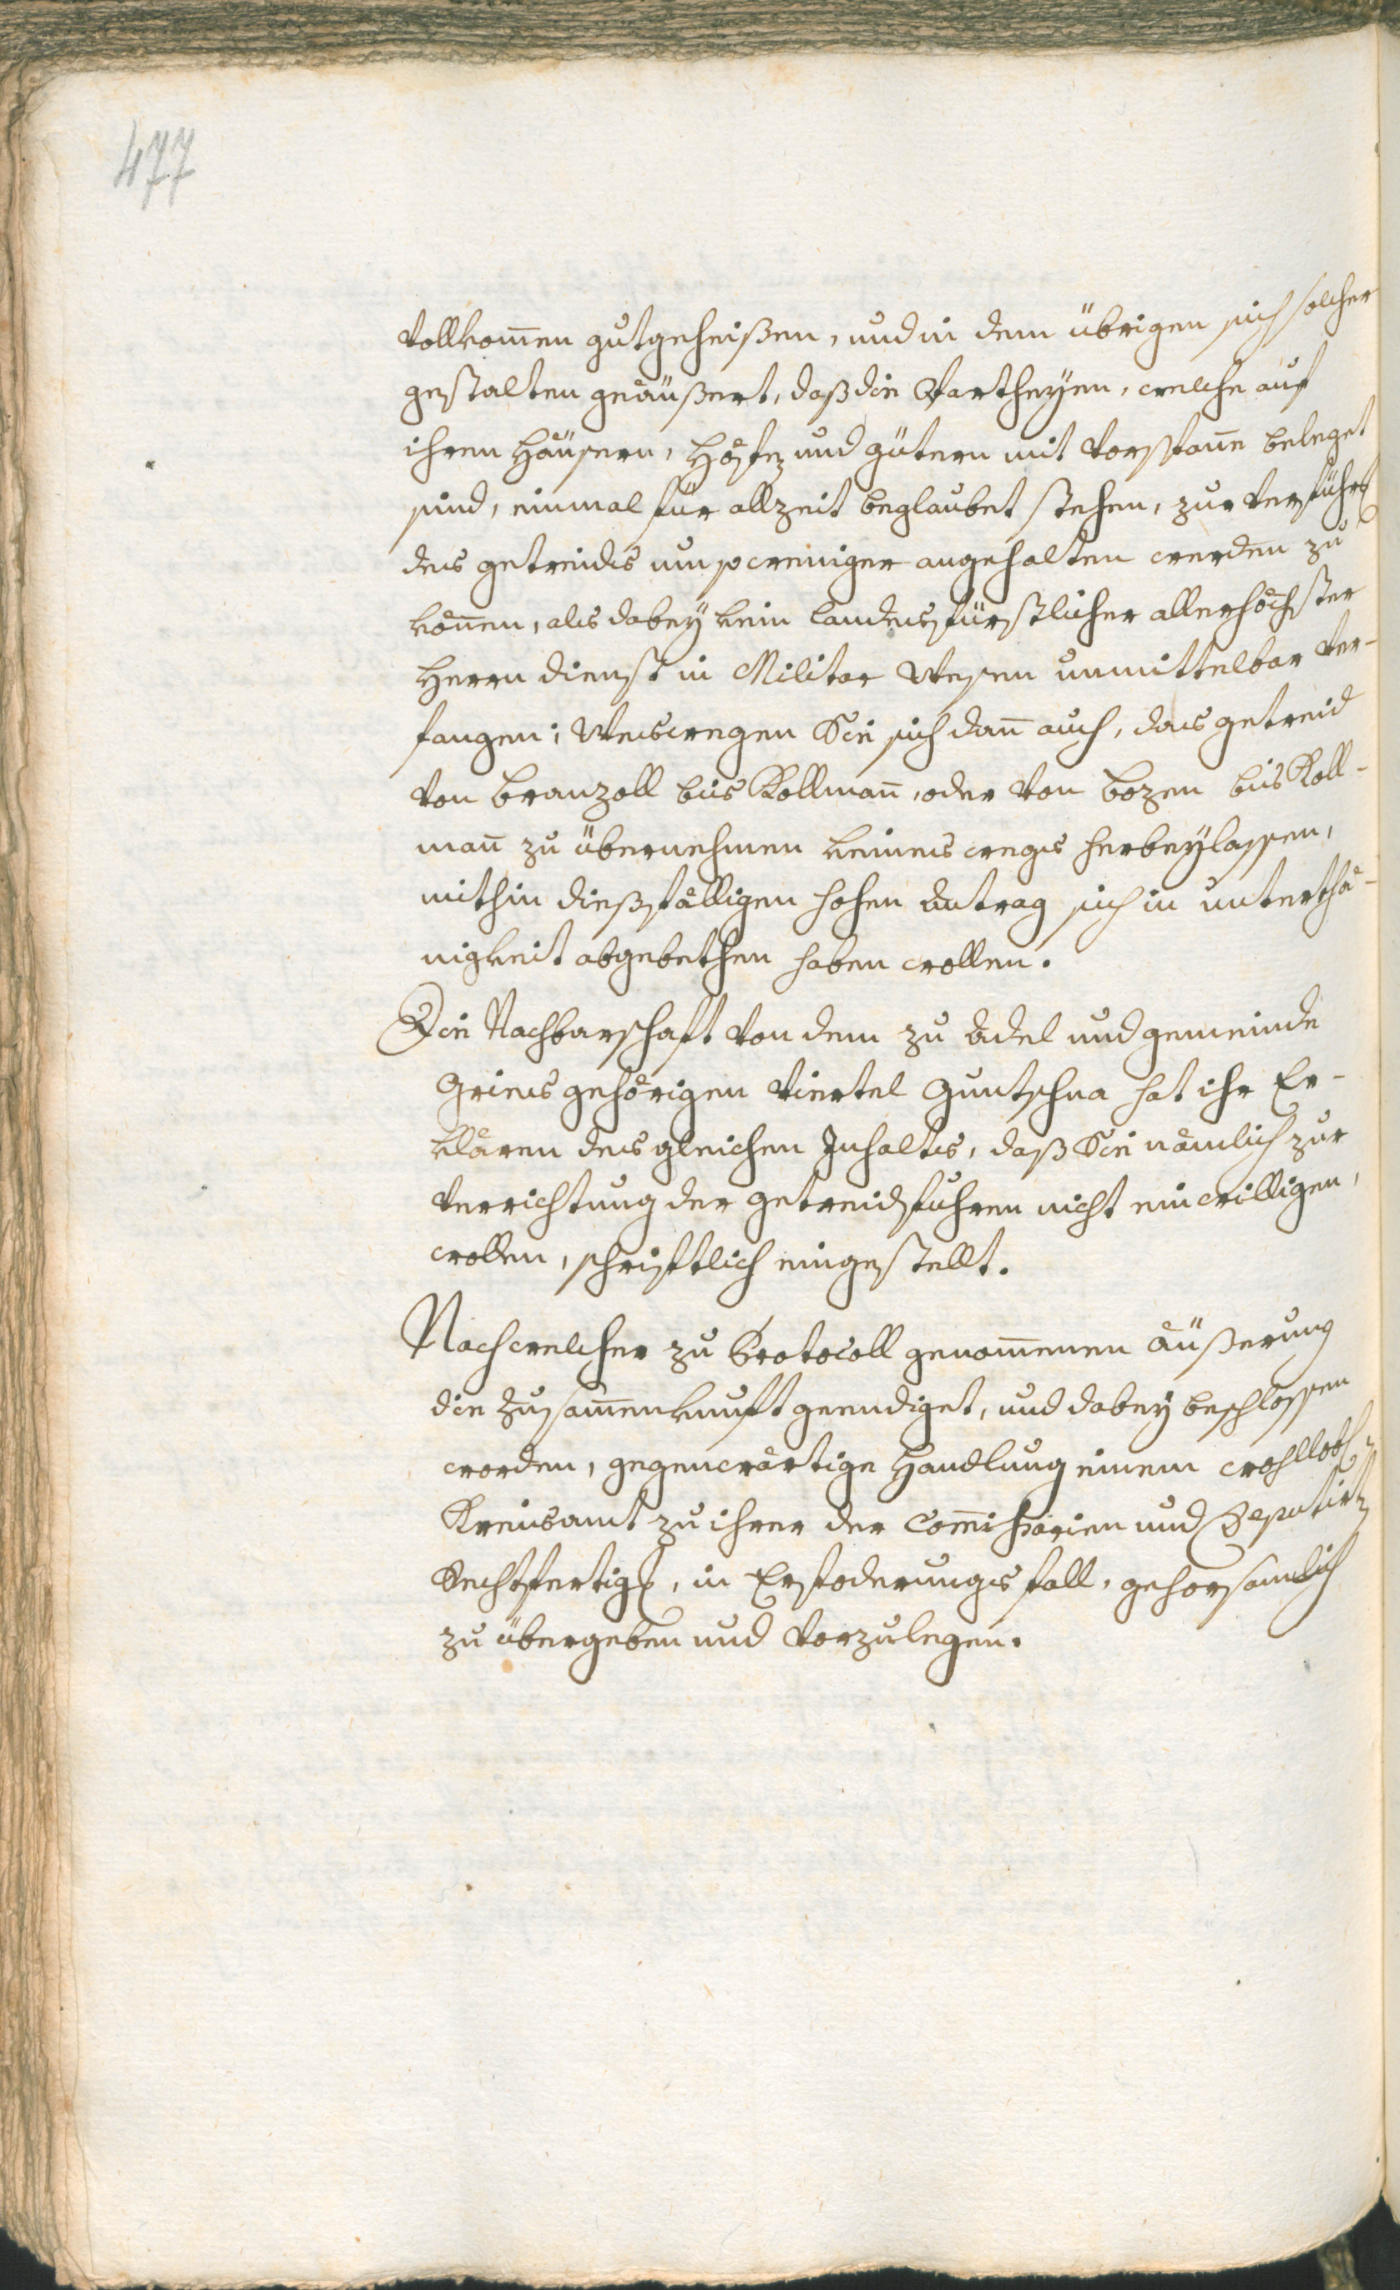 477
vollkom̄en gutgeheißen, und in dem übrigen sich solcher
gestalten geäußert, daß die Partheyen, welche auf
ihren Häusern, Höfen und gütern mit Vorspann beleget
sind, einmal für allzeit beglaubet stehen, zur Verführ
des getreides um so weniger angehalten werden zu
kön̄en, als dabey kein landesfürstlicher allerhöchster
Herrn dienst in Militar Wesen unmittelbar ver-
fangen; Weswegen Sie sich dan̄ auch, das getreid
von Branzoll bis Kollman̄, oder von Bozen bis Koll-
man̄ zu übernehmen keines wegs herbeylassen,
mithin dießfälligen hohen Antrag sich in unterthä-
nigkeit abgebethen haben wollen.
Die Nachbarschaft von dem zu Adel und gemeinde
Gries gehörigen Viertel Guntschna hat ihr Er-
klären des gleichen Inhaltes, daß Sie nämlich zur
Verrichtung der getreidfuhren nicht einwilligen,
wollen, schriftlich eingestellt.
Nach welcher zu Protocoll genom̄enen äußerung
die Zusam̄enkunft geendiget, und dabey beschlossen
worden, gegenwärtige Handlung einem wohllobl:
Kreisamt zu ihrer der Com̄issarien und Deputirten
Rechtfertig, in Erfoderungs fall, gehorsamlich
zu übergeben und vorzulegen.